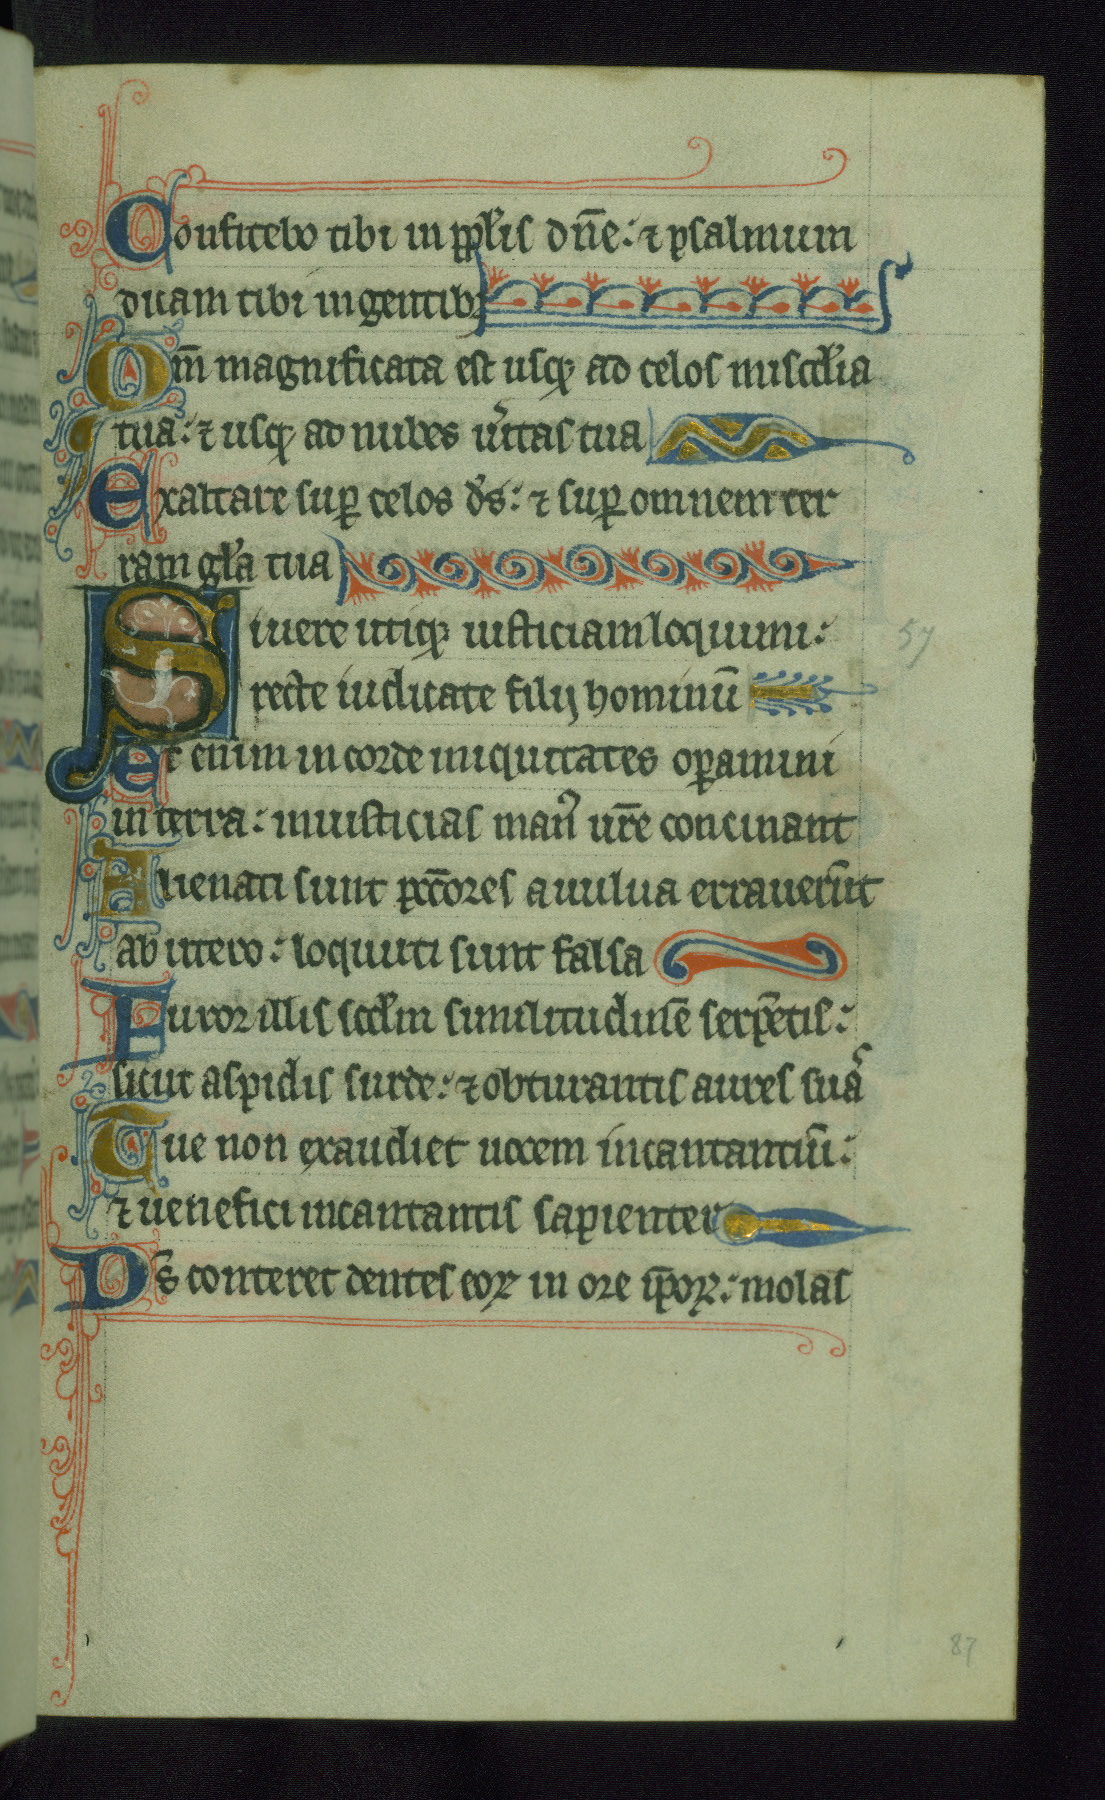 Confitebo tibi in pp̄lis dn̄e: ⁊ psalmum
dicam tibi in gentibꝫ
Qm̄ magnificata est usqꝫ ad celos miscd̄ia
tua: ⁊ usqꝫ ad nubes ūitas tua
Exaltare suꝑ celos d̄s: ⁊ suꝑ omnem ter
ram gl̄a tua
Si uere utiqꝫ iusticiam loquimi:
recte iudicate filij hominū
Et enim in corde iniquitates oꝑamini
in terra: iniusticias man᷒ ur̄e concinant
Alienati sunt pc̄cores a uulua erauerūt
ab utero: locuti sunt falsa
Furor illis scd̄m similitudinē serpētis:
sicut aspidis surde: ⁊ obturantis aures suaᷤ
Que non exaudiet uocem incantantiū:
⁊ uenefici incantantis sapienter
Ds̄ conteret dentes eoꝝ in ore ip̄oꝝ: molas
57
87